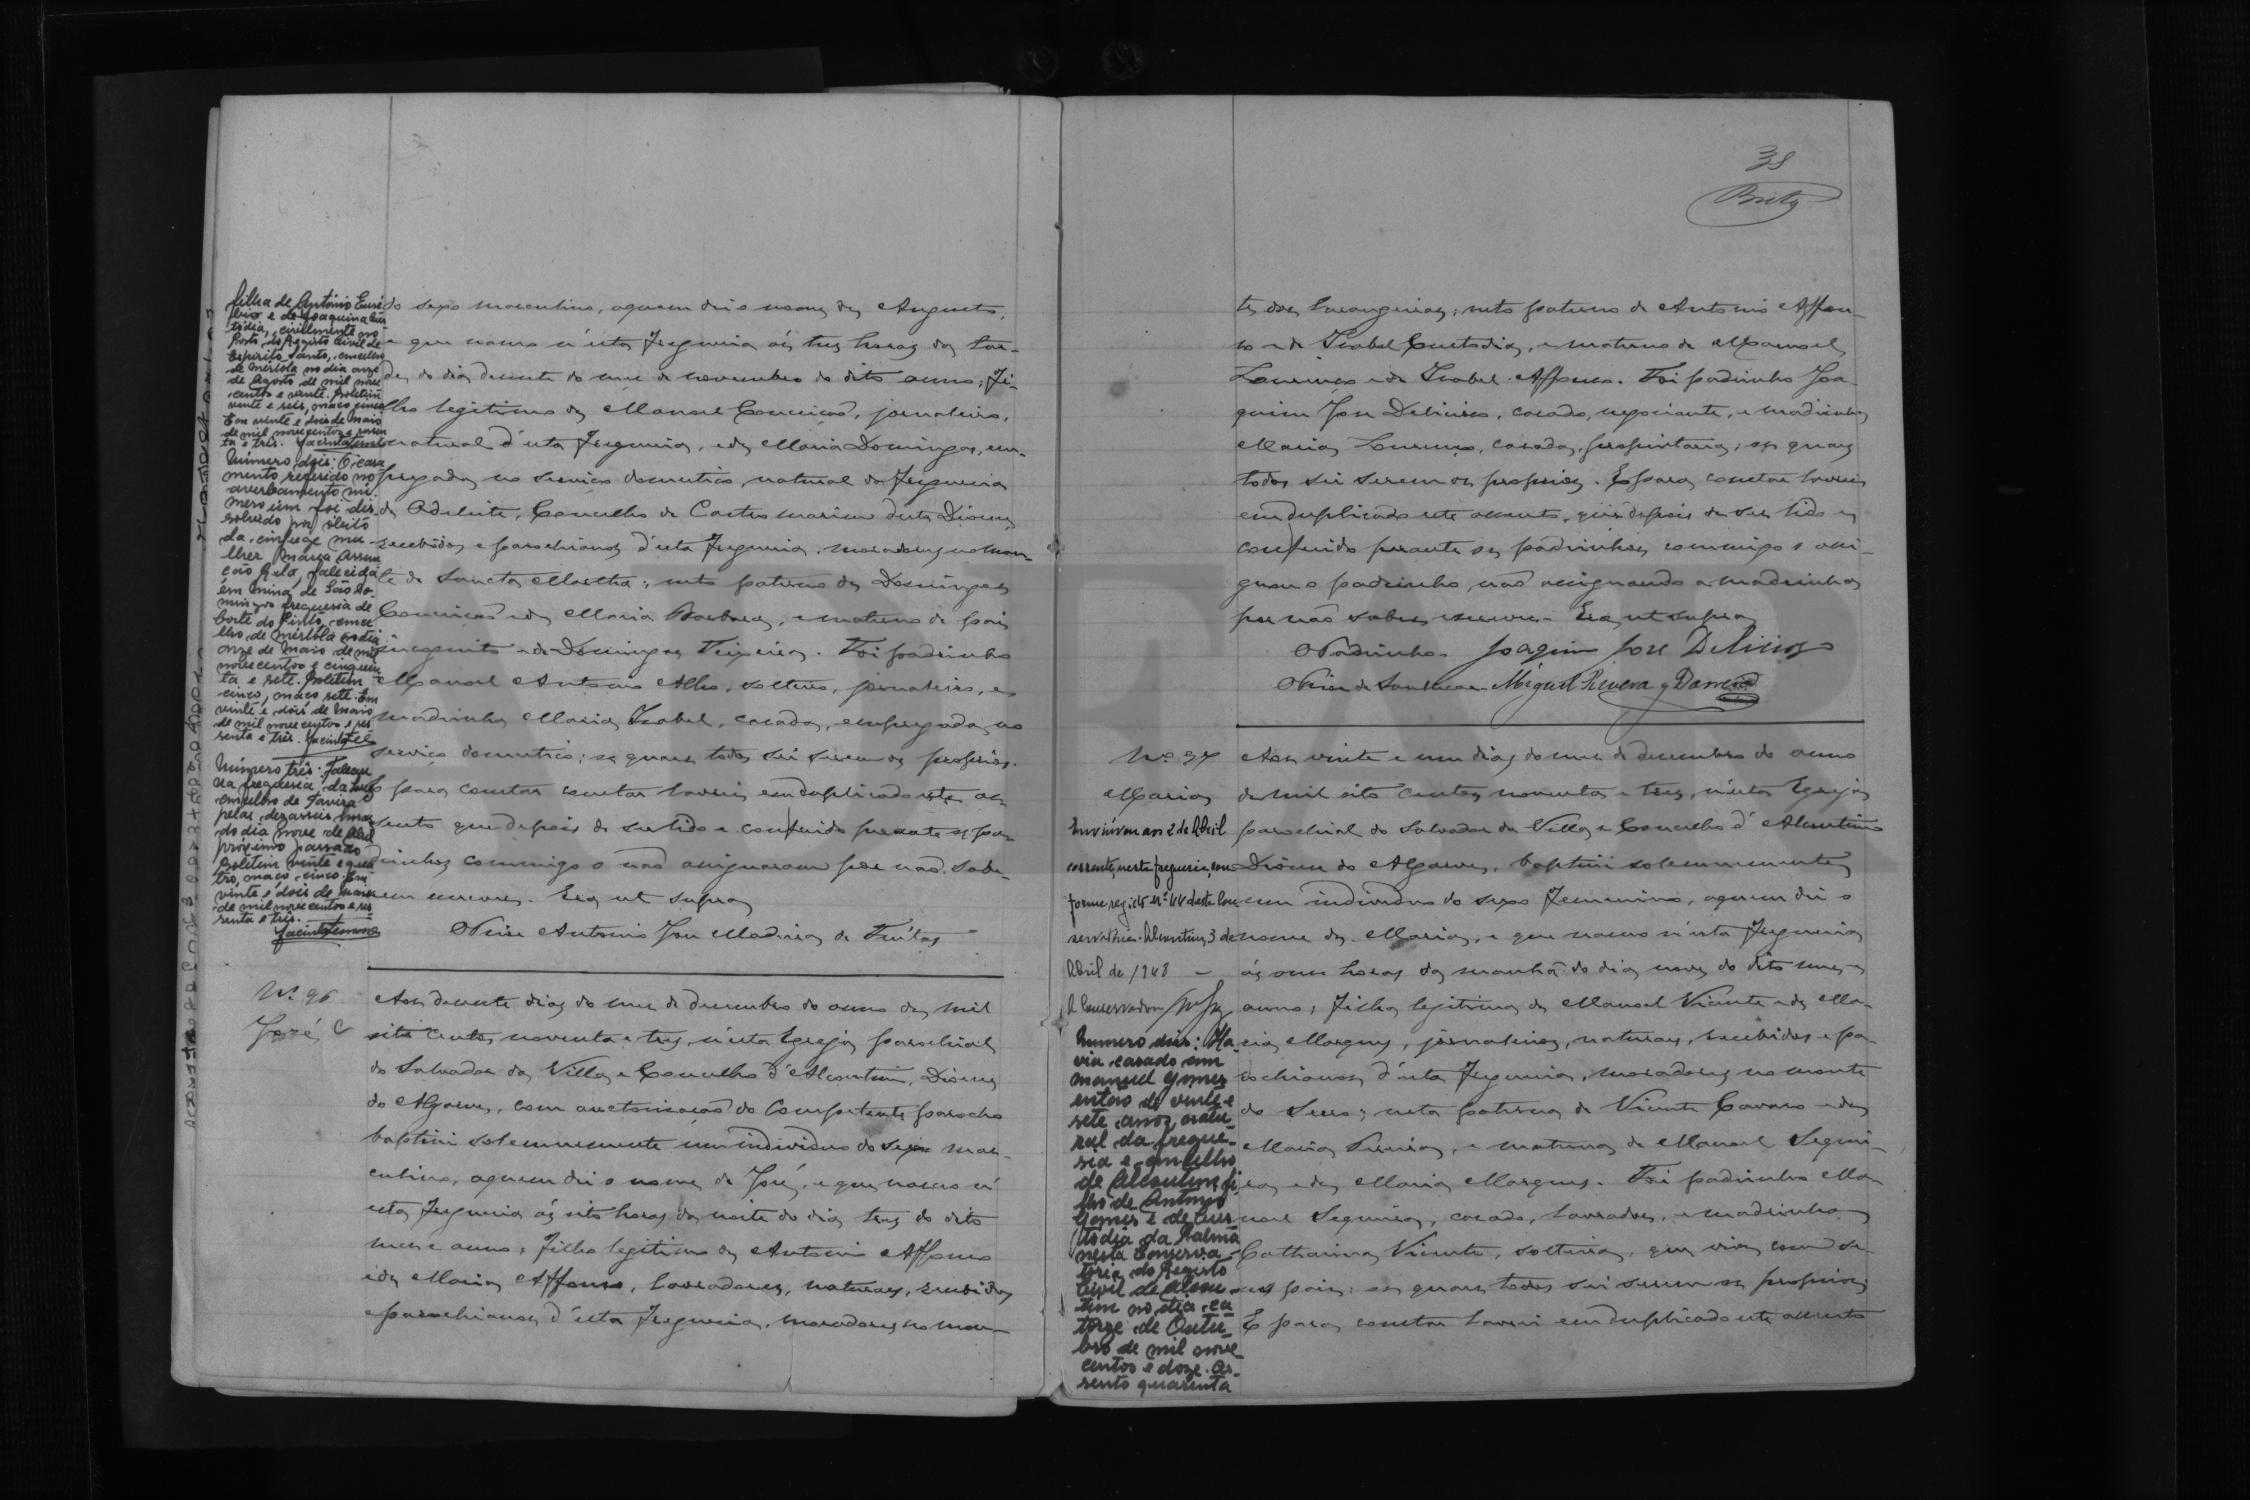 filha de António Eusé
bio e de Joaquina Cus
tódia, civilmente no
Posto do Registo Civil de
Espírito Santo, concelho
de Mértola no dia onze
de Agosto de mil nove
centos e vinte. Boletim
vinte e seis, maço cinco
Em vinte e dois de Maio
de mil novecentos e sessen
ta e três.
Número dois: O casa
mento referido no
averbamento nú
mero um foi dis
solvido por óbito
da cônjuge mu
lher Maria Assun
ção falecida
em Mina de São Do
mingos freguesia de
Corte do Pinto, conce
lho de Mértola no dia
onze de Maio de mil
novecentos e cinquen
ta e sete. Boletim
cinco, maço sete. Em
vinte e dois de Maio
de mil novecentos e ses
senta e três.
Número três: Faleceu
na freguesia da Luz
concelho de Tavira
pelas dezasseis horas
do dia nove de Abril
próximo passado
Boletim vinte e qua
tro, maço cinco. Em
vinte e dois de Maio
de mil novecentos e ses
senta e três.
do sexo masculino, a quem dei o nome de Augusto,
e que nasceu n'esta Freguesia ás tres horas da tar-
de do dia desente do mez de novembro do dito anno, Fi-
lho legitimo de Manoel Conceicaõ, jornaleiro,
natural d'esta Freguesia, e de Maria Domingas, em-
pregada no servico domestico, natural da Freguesia
de Odeleite, Concelho de Castro marim desta Diocese
recebidos e parochianos d'esta Freguesia, moradores no mon-
te de Sancta Martha; neto paterno de Domingos
Conceicaõ e de Maria Barbara, e materno de pai
incognito e de Domingas Teixeira. Foi padrinho
Manoel Antonio Alho, solteiro, jornaleiro, e
madrinha Maria Isabel, casada, empregada no
serviço domestico; os quaes todos sei serem os proprios.
E para constar constar lavrei em duplicado este as
sento que depois de ser lido e conferido perante os pa-
drinhos commigo o não assignaram por não sabe-
rem escrever. Era ut supra
O Prior Antonio José Madeira de Freitas
Nº. 96
José
Aos desente dias do mez de dezembro do anno de mil
oito centos noventa e tres, n'esta Egreja parochial
do Salvador da Villa e Concelho d'Alcoutim, Diocese
do Algarve, com auctorisacaõ do Competente parocho
baptisei solemnemente um individuo do sexo mas-
culino, a quem dei o nome de José, e que nasceu n'
esta Freguesia ás oito horas da noite do dia tres do dito
mez e anno; Filho legitimo de Antonio Affonso
e de Maria Affonso, lavradores, naturaes, recebidos
e parochianos d'esta Freguesia, moradores no mon-
38
Brito
te das Larangeiras; neto paterno de Antonio Affon-
so e de Isabel Custodia, e materno de Manoel
Lourenco e de Isabel Affonso. Foi padrinho Joa-
quim José Delicioso, casado, negociante, e madrinha
Maria Lourenço, casada, proprietaria; os quaes
todos sei serem os proprios. E para constar lavrei
em duplicado este assento, que depois de ser lido e
conferido perante os padrinhos commigo o assi-
gnou o padrinho, não assignando a madrinha
por não saber escrever. Era ut supra
O Padrinho. Joaquim José Delicioso
Miguel Rivera y
Nº. 97
Maria
Enviuvou aos 2 de Abril
corrente, nesta freguesia, con
forme registo nº 44 desta Con
servatória. Alcoutim, 3 de
Abril de 1948
O Conservador
Numero dois: Ha
via casado com
Manuel Gomes
então de vinte e
sete anos, natu
ral da fregue-
sia e concelho
de Alcoutim, fi
lho de António
Gomes e de Cus
tódia da Palma
nesta Conserva-
tória do Registo
Civil de Alcou
tim no dia ca
torze de Outu-
bro de mil nove
centos e doze. As-
sento quarenta
Aos vinte e um dias do mez de dezembro do anno
de mil oito centos noventa e tres, n'esta Egreja
parochial do Salvador da Villa e Concelho d'Alcoutim
Diocese do Algarve, baptisei solemnemente
um individuo do sexo Feminino, a quem dei o
nome de Maria, e que nasceu n'esta Freguesia
ás onze horas da manhã do dia nove do dito mez e
anno; Filha legitima de Manoel Vicente e de Ma-
ria Marques, jornaleiros, naturaes, recebidos e pa-
rochianos d'esta Freguesia, moradores no monte
do Serro; neta paterna de Vicente Cavaco e de
Maria Pereira, e materna de Manoel Sequei-
ra e de Maria Marques. Foi padrinho Ma-
noel Sequeira, casado, lavrador, e madrinha
Catharina Vicente, solteira, que vive com se-
us pais; os quaes todos sei serem os proprios;
E para constar lavrei em duplicado este assento